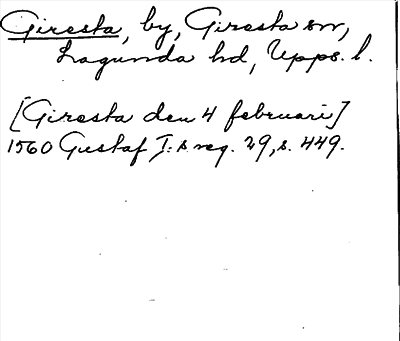 Giresta, by, Giresta sn,
Lagunda hd, Upps. l.
[Giresta den 4 februari]
1560 Gustaf I:s reg. 29, s. 449.